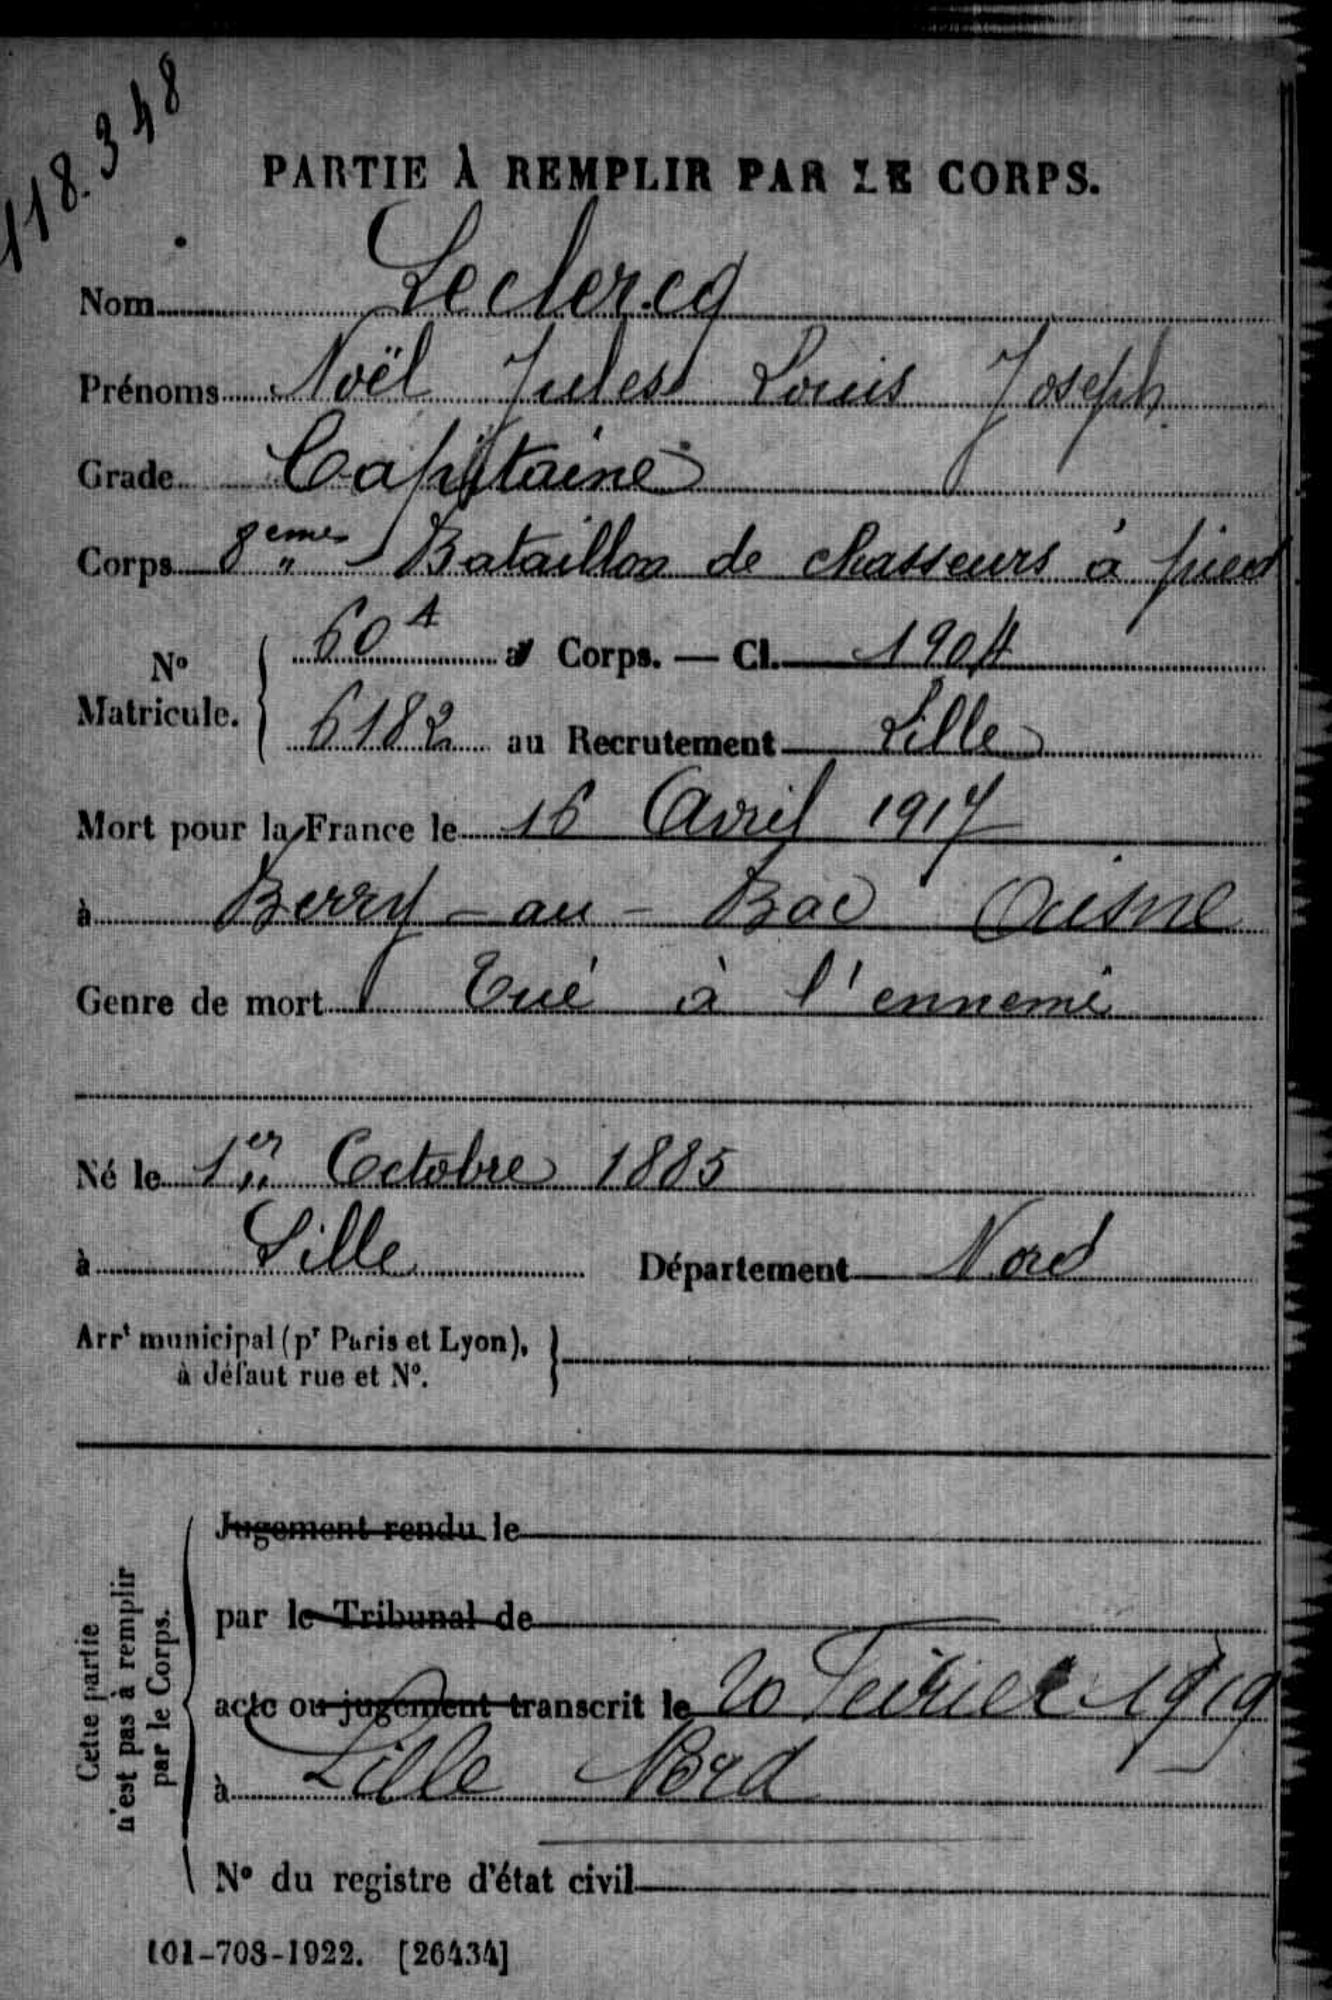 118.348
PARTIE À REMPLIR PAR LE CORPS.
Nom Leclercq
Prénoms Noël Jules Louis Joseph
Grade Capitaine
Corps 8ème Bataillon de chasseurs à pied
N° Matricule. { 60 A au Corps. — Cl. 1904
6182 au Recrutement Lille
Mort pour la France le 16 Avril 1917
à Berry-au-Bac Aisne
Genre de mort Tué à l'ennemi
Né le 1er Octobre 1885
à Lille Département Nord
Arrt municipal (pr Paris et Lyon), }
à défaut rue et N°.
Cette partie
n'est pas à remplir
par le Corps.
Jugement rendu le
par le Tribunal de
acte ou jugement transcrit le 20 Février 1919
à Lille Nord
N° du registre d'état civil
101-708-1922. [26434]